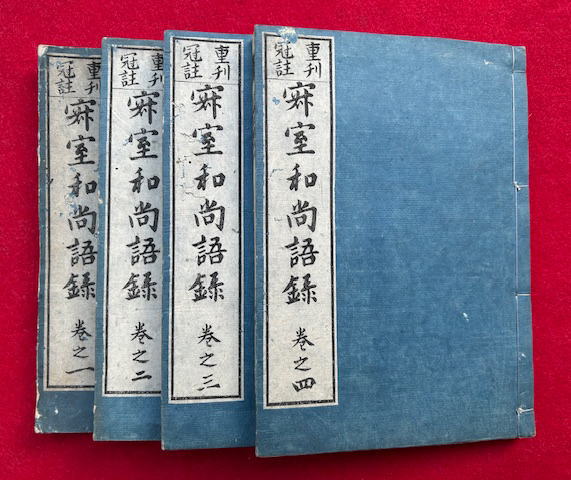 重刊
冠註
寂室和尚語録 巻之一
重刊
冠註
寂室和尚語録 巻之二
重刊
冠註
寂室和尚語録 巻之三
重刊
冠註
寂室和尚語録 巻之四